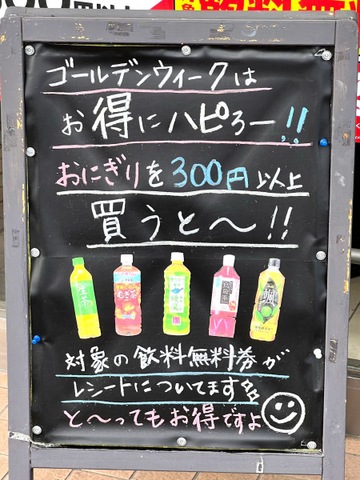 ゴールデンウィークは
お得にハピろー!!
おにぎりを300円以上
買うと〜!!
むぎ茶
対象の飲料無料券が
レシートについてます多
と〜ってもお得ですよ